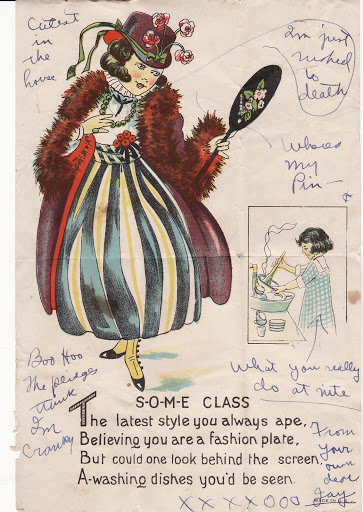 Cutest
in
the
house
I'm just
rushed
to
death
Whose
My
Pin-
Boo Hoo
The pledges
think
I'm
Cranky
What you really
do at nite
From
your
own
dear
Jay
S-O-M-E CLASS
The latest style you always ape,
Believing you are a fashion plate,
But could one look behind the screen,
A-washing dishes you'd be seen.
XXXXOOO